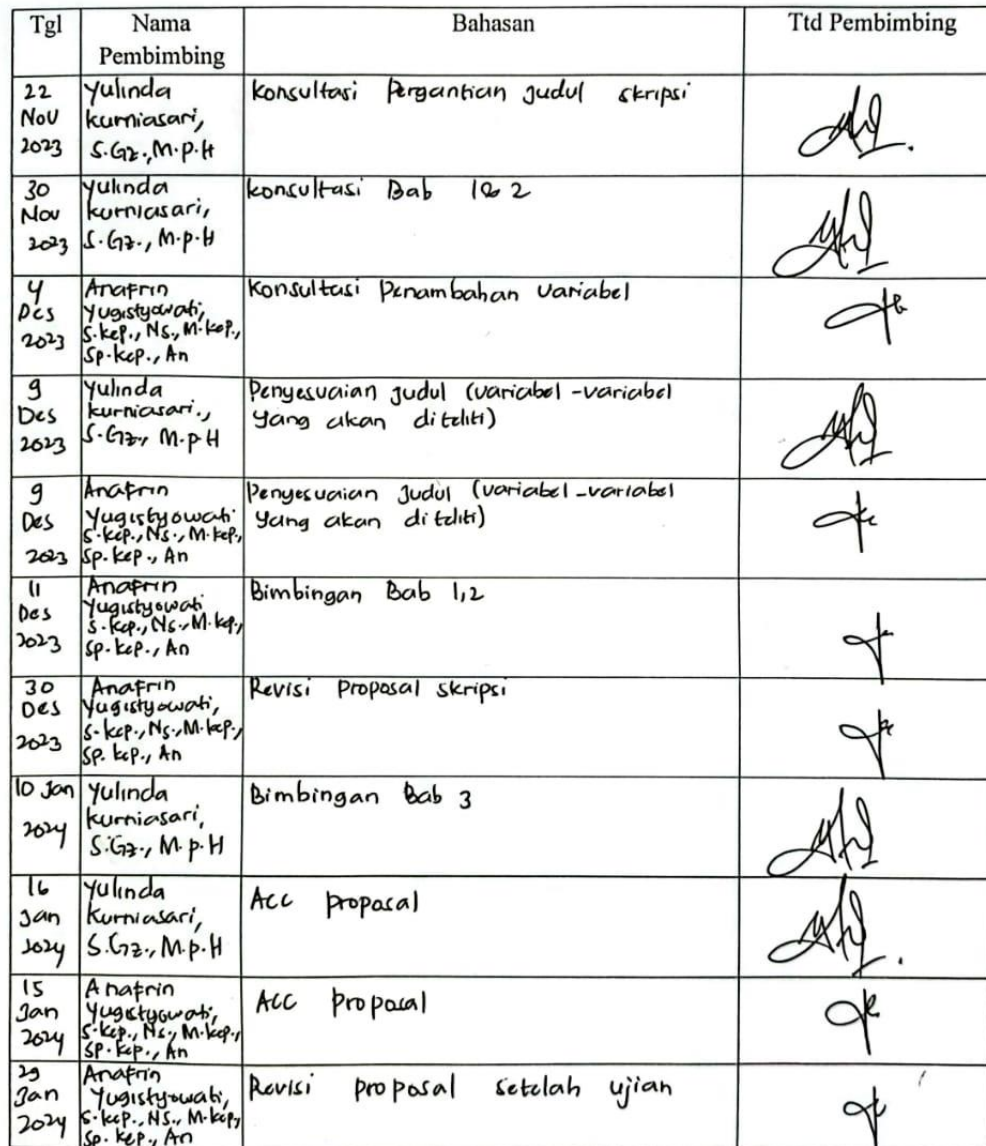 Tgl Nama Pembimbing Bahasan Ttd Pembimbing
22 Nov 2023 Yulinda kurniasari, S.Gz., M.p.H Konsultasi Pergantian Judul skripsi
30 Nov 2023 Yulinda kurniasari, S.Gz., M.p.H konsultasi Bab 1 & 2
4 Des 2023 Anafrin Yugistyowati, S.kep., Ns., M.kep., Sp.kep., An Konsultasi Penambahan variabel
9 Des 2023 Yulinda kurniasari., S.Gz., M.p.H Penyesuaian Judul (variabel-variabel
yang akan diteliti)
9 Des 2023 Anafrin Yugistyowati S.kep., Ns., M.kep., Sp.kep., An Penyesuaian Judul (variabel-variabel
yang akan diteliti)
11 Des 2023 Anafrin Yugistyowati S.kep., Ns., M.kep., Sp.kep., An Bimbingan Bab 1,2
30 Des 2023 Anafrin Yugistyowati, S.kep., Ns., M.kep., Sp.kep., An Revisi Proposal skripsi
10 Jan 2024 Yulinda kurniasari, S.Gz., M.p.H Bimbingan Bab 3
16 Jan 2024 Yulinda Kurniasari, S.Gz., M.p.H Acc proposal
15 Jan 2024 Anafrin Yugistyowati, S.kep., Ns., M.kep., Sp.kep., An Acc proposal
29 Jan 2024 Anafrin Yugistyowati, S.kep., Ns., M.kep., Sp.kep., An Revisi proposal setelah ujian